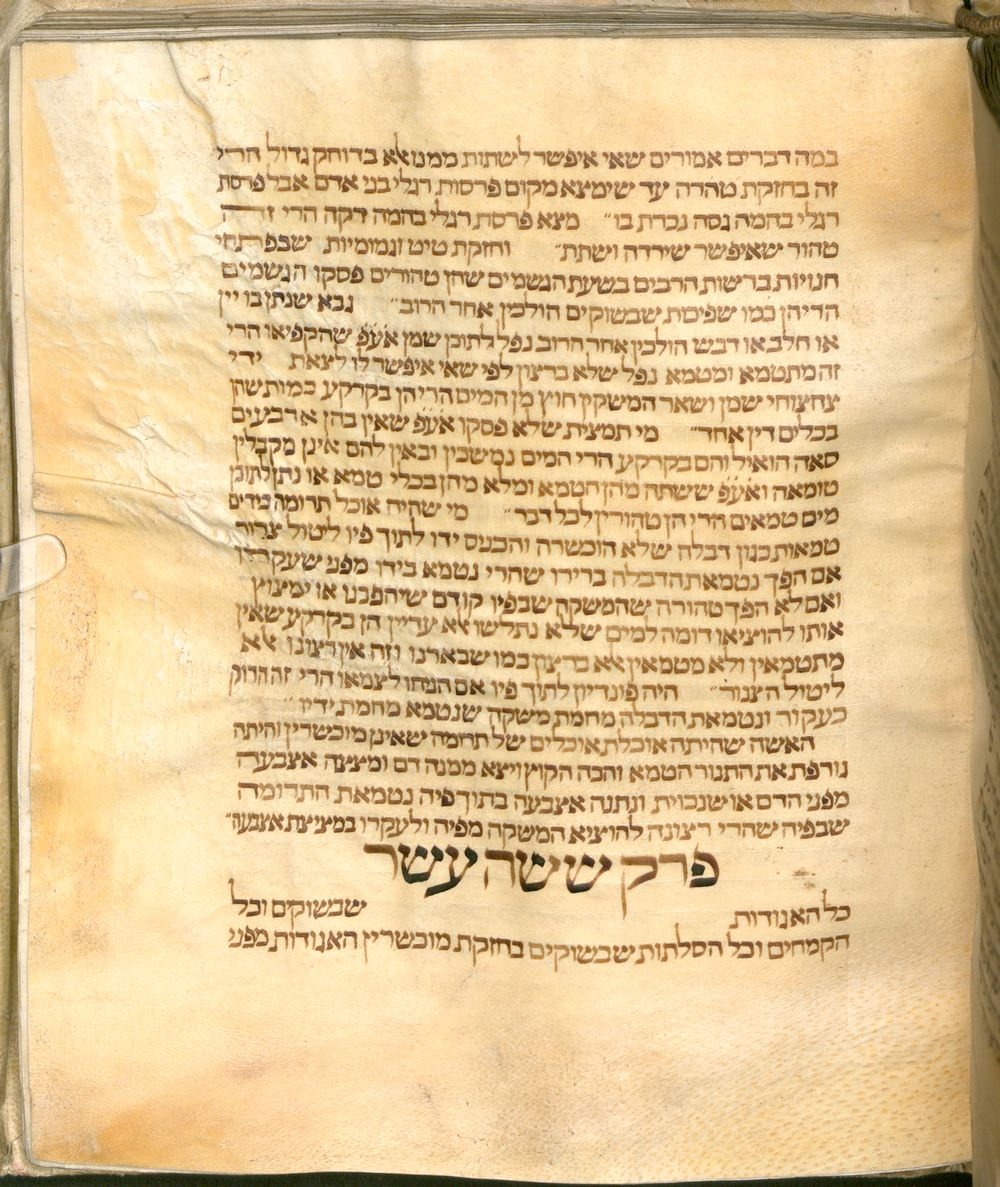 במה דברים אמורים שאי איפשר לשתות ממנו אלא בדוחק גדול הרי
זה בחזקת טהרה עד שימצא מקום פרסות רגלי בני אדם אבל פרסת
רגלי בהמה גסה נכרת בו״ מצא פרסת רגלי בהמה דקה הרי זה
טהור שאיפשר שירדה ושתת״ וחזקת טיט וגמומיות שבפתחי
חנויות ברשות הרבים בשעת הגשמים שהן טהורים פסקו הגשמים
הרי הן כמו שפיכות שבשוקים הולכין אחר הרוב״ גבא שנתן בו יין
או חלב או דבש הולכין אחר הרוב נפל לתוכן שמן אע״פ שהקפיאו הרי
זה מתטמא ומטמא נפל שלא ברצון לפי שאי איפשר לו לצאת ידי
צחצוחי שמן ושאר המשקין חוץ מן המים הרי הן בקרקע כמות שהן
בכלים דין אחד״ מי תמצית שלא פסקו אע״פ שאין בהן ארבעים
סאה הואיל והם בקרקע הרי המים נמשכין ובאין להם אינן מקבלין
טומאה ואע״פ ששתה מהן הטמא ומלא מהן בכלי טמא או נתן לתוכן
מים טמאים הרי הן טהורין לכל דבר״ מי שהיה אוכל תרומה בידים
טמאות כגון דבלה שלא הוכשרה והכניס ידו לתוך פיו ליטול צרור
אם הפך נטמאת הדבלה ברירו שהרי נטמא בידו מפני שעקרו
ואם לא הפך טהורה שהמשקה שבפיו קודם שיהפכנו או ימצוץ
אותו להוציאו דומה למים שלא נתלשו אלא עדיין הן בקרקע שאין
מתטמאין ולא מטמאין אלא ברצון כמו שבארנו וזה אין רצונו אלא
ליטול הצרור״ היה פונדיון לתוך פיו אם הניחו לצמאו הרי זה הרוק
כעקור ונטמאת הדבלה מחמת משקה שנטמא מחמת ידיו״
האשה שהיתה אוכלת אוכלים של תרומה שאינן מוכשרין והיתה
גורפת את התנור הטמא והכה הקוץ ויצא ממנה דם ומצצה אצבעה
מפני הדם או שנכוית ונתנה אצבעה בתוך פיה נטמאת התרומה
שבפיה שהרי רצונה להוציא המשקה מפיה ולעקרו במציצת אצבעה״
פרק ששה עשר
כל האגודות שבשוקים וכל
הקמחים וכל הסלתות שבשוקים בחזקת מוכשרין האגודות מפני